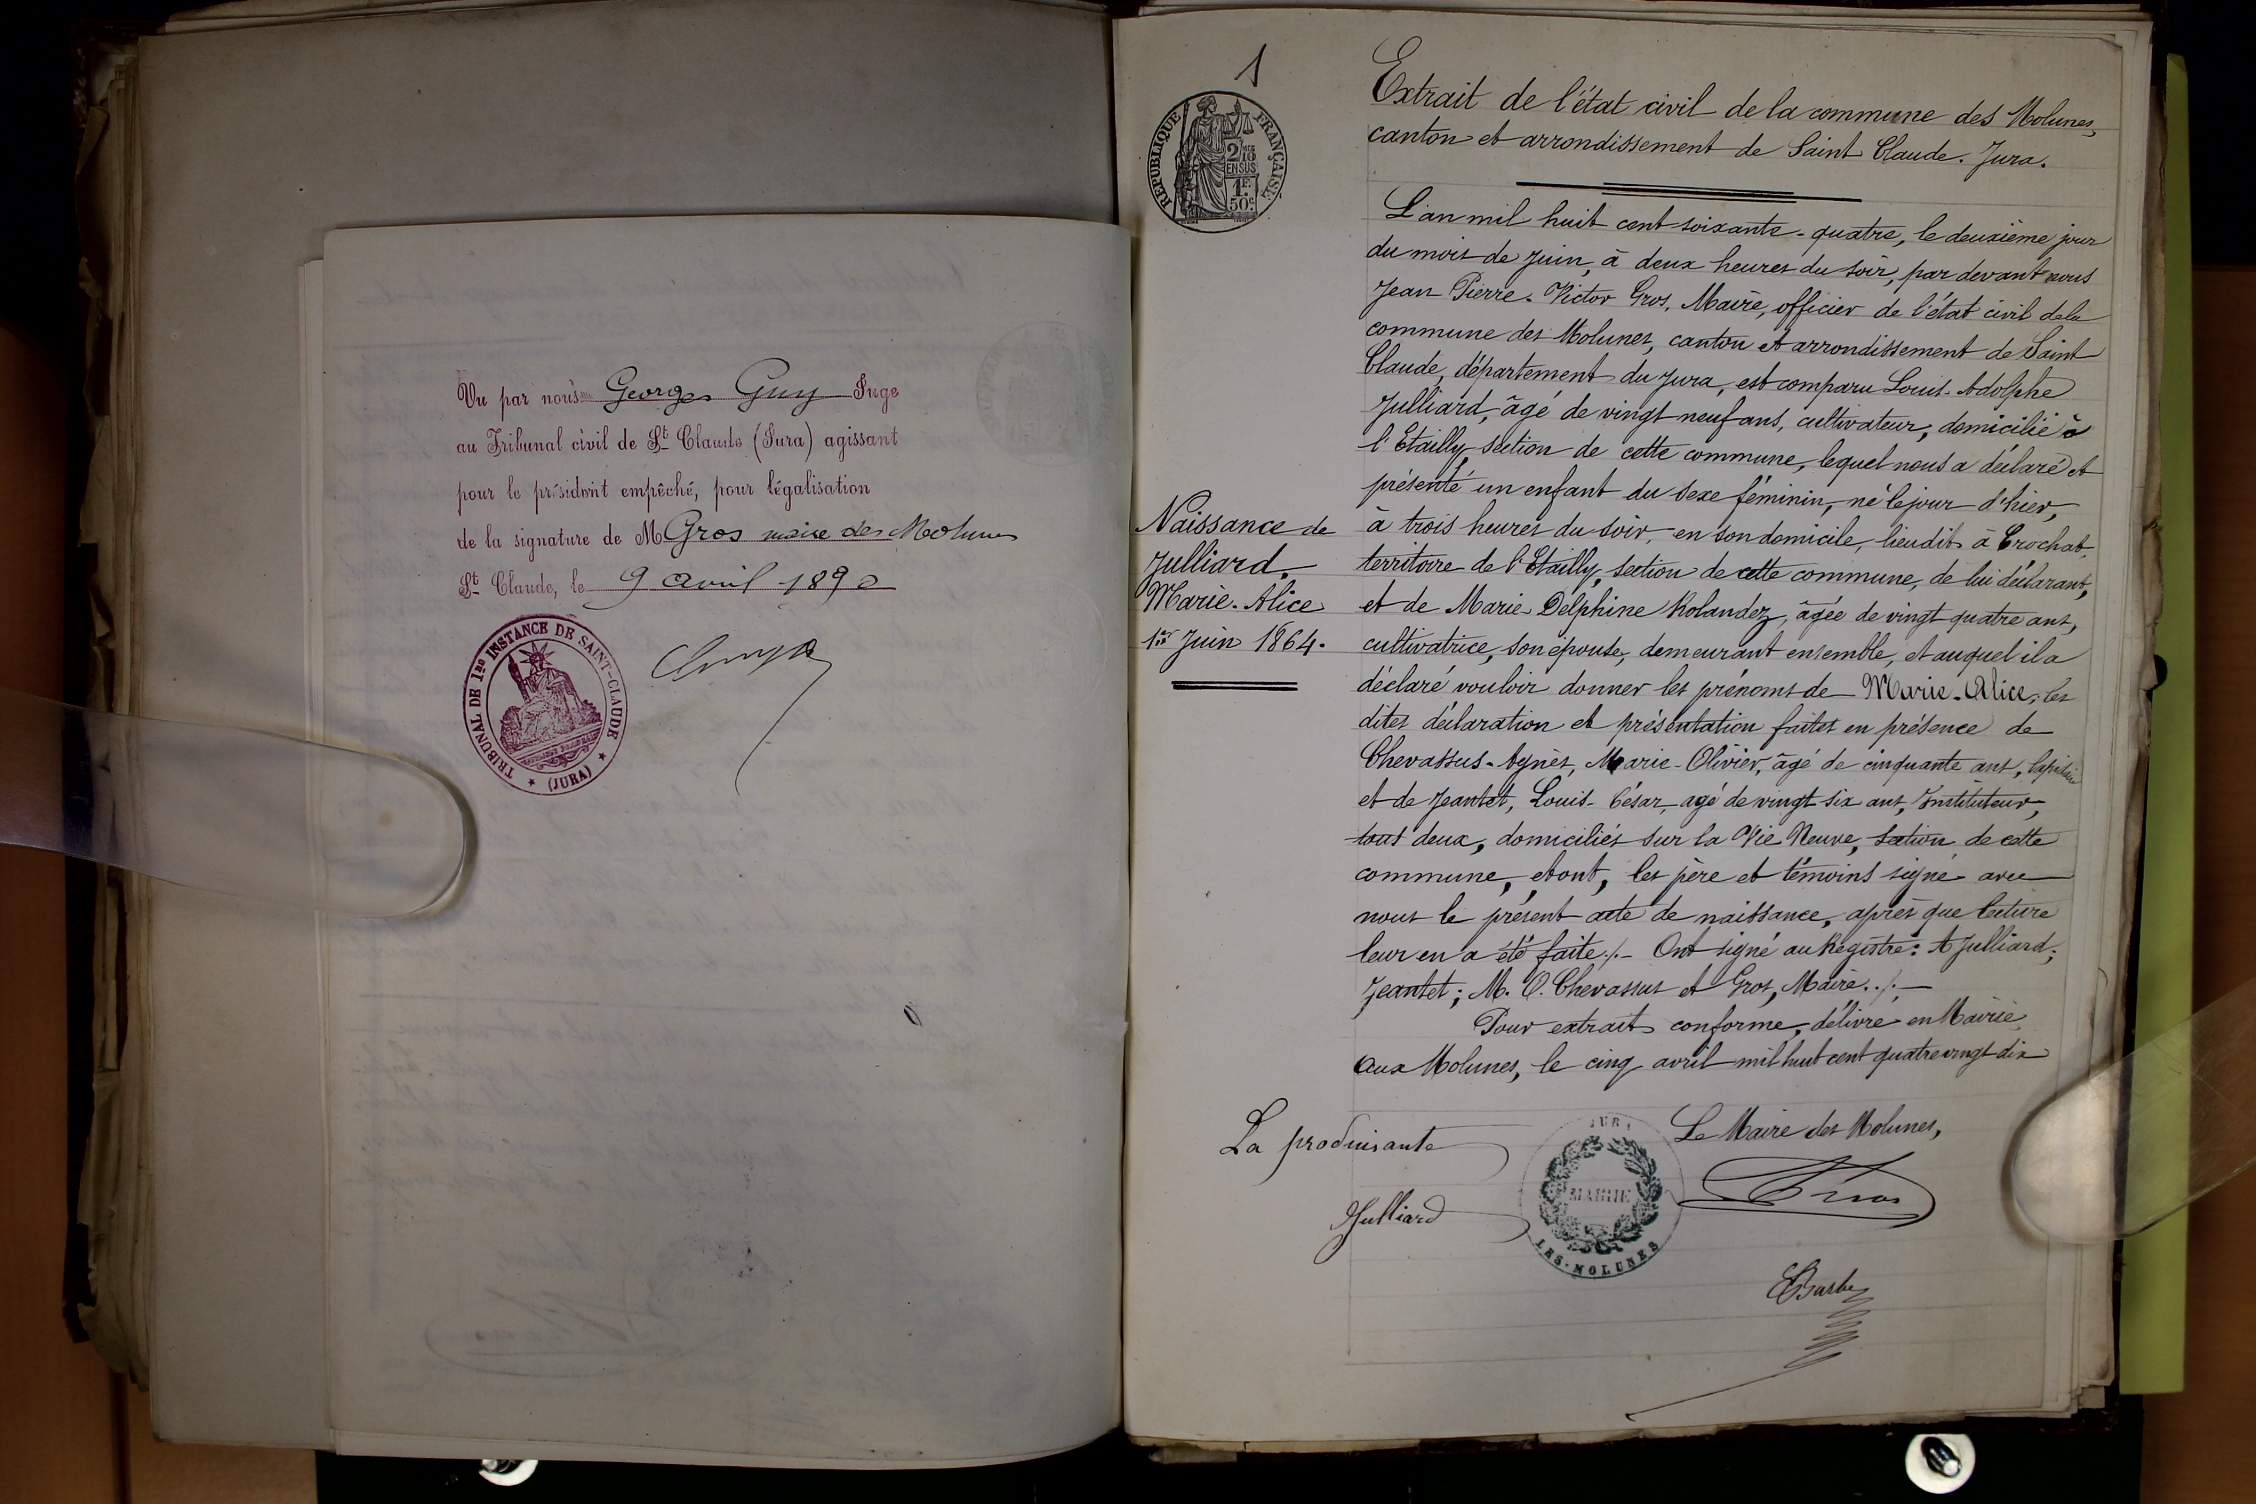 Vu par nous Georges Guy Juge
au Tribunal civil de St Claude (Jura) agissant
pour le président empêché, pour légalisation
de la signature de M Gros maire des Molunes
St Claude, le 9 avril 1890
TRIBUNAL DE 1RE INSTANCE DE SAINT-CLAUDE
(JURA)
1
REPUBLIQUE FRANÇAISE
2/10
EN SUS
1F.
50c
Extrait de l'état civil de la commune des Molunes,
canton et arrondissement de Saint Claude. Jura.
L'an mil huit cent soixante-quatre, le deuxième jour
du mois de Juin, à deux heures du soir, par devant nous
Jean Pierre-Victor Gros, Maire, officier de l'état civil de la
commune des Molunes, canton et arrondissement de Saint
Claude, département du Jura, est comparu Louis-Adolphe
Julliard, âgé de vingt neuf ans, cultivateur, domicilié à
l'Etailly, section de cette commune, lequel nous a déclaré et
présenté un enfant du sexe féminin, né le jour d'hier,
à trois heures du soir, en son domicile, lieudit à Crochat,
territoire de l'Etailly, section de cette commune, de lui déclarant,
et de Marie Delphine Rolandez, âgée de vingt quatre ans,
cultivatrice, son épouse, demeurant ensemble, et auquel il a
déclaré vouloir donner les prénoms de Marie-Alice, les
dites déclaration et présentation faites en présence de
Chevassus-Agnès, Marie-Olivier, âgé de cinquante ans, lapidaire
et de Jeantet, Louis-César, agé de vingt six ans, Instituteur,
tous deux, domiciliés sur la Vie Neuve, section de cette
commune, et ont, les père et témoins signé avec
nous le présent acte de naissance, après que lecture
leur en a été faite ./. Ont signé au Registre: A Julliard;
Jeantet; M. O. Chevassus et Gros, Maire ./.
Pour extrait conforme, délivré en Mairie
aux Molunes, le cinq avril mil huit cent quatre vingt dix
Naissance de
Julliard,
Marie-Alice
1er Juin 1864.
La produisante
Julliard
JURA
MAIRIE
LES-MOLUNES
Le Maire des Molunes,
Gros
EBarbe